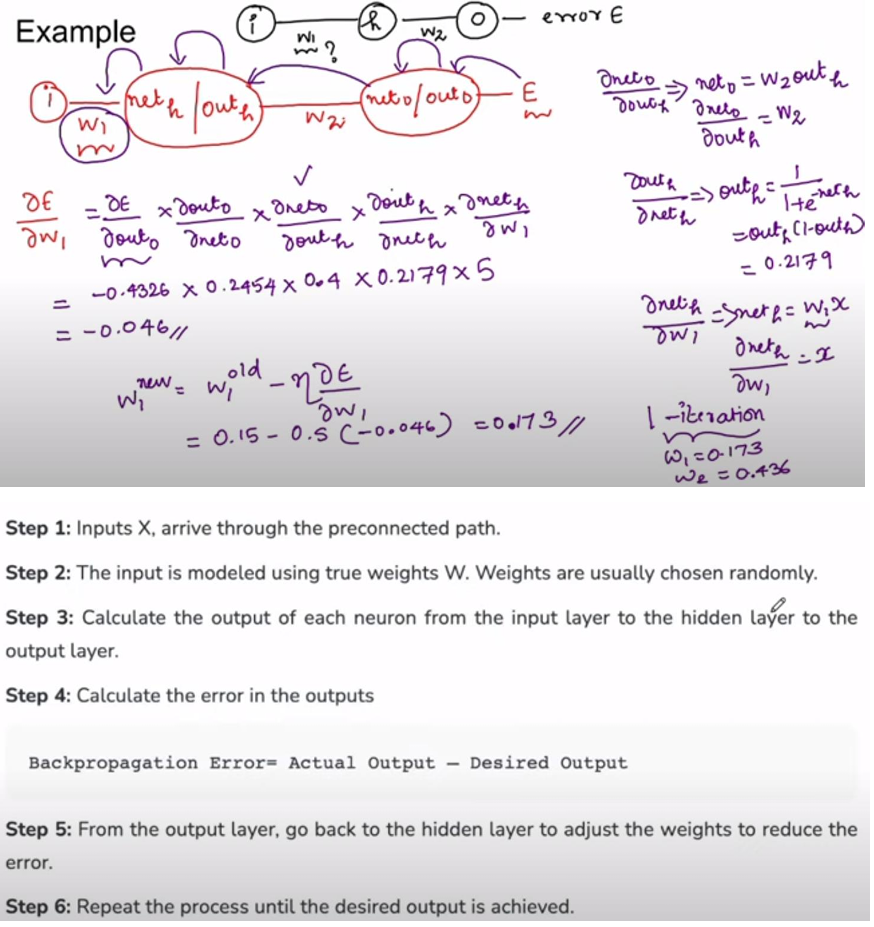 Example
i h o — error E
w₁ ? w₂
i net h / out h net o / out o E
w₁ w₂
∂net o / ∂out h ⇒ net o = w₂ out h
∂net o / ∂out h = w₂
∂E/∂w₁ = ∂E/∂out o × ∂out o/∂net o × ∂net o/∂out h × ∂out h/∂net h × ∂net h/∂w₁
= -0.4326 × 0.2454 × 0.4 × 0.2179 × 5
= -0.046 //
∂out h / ∂net h ⇒ out h = 1 / 1+e^-net h
= out h (1-out h)
= 0.2179
∂net h / ∂w₁ ⇒ net h = w₁x
∂net h / ∂w₁ = x
w₁^new = w₁^old - η ∂E/∂w₁
= 0.15 - 0.5 (-0.046) = 0.173 //
1 - iteration
w₁ = 0.173
w₂ = 0.436
Step 1: Inputs X, arrive through the preconnected path.
Step 2: The input is modeled using true weights W. Weights are usually chosen randomly.
Step 3: Calculate the output of each neuron from the input layer to the hidden layer to the
output layer.
Step 4: Calculate the error in the outputs
Backpropagation Error= Actual Output – Desired Output
Step 5: From the output layer, go back to the hidden layer to adjust the weights to reduce the
error.
Step 6: Repeat the process until the desired output is achieved.